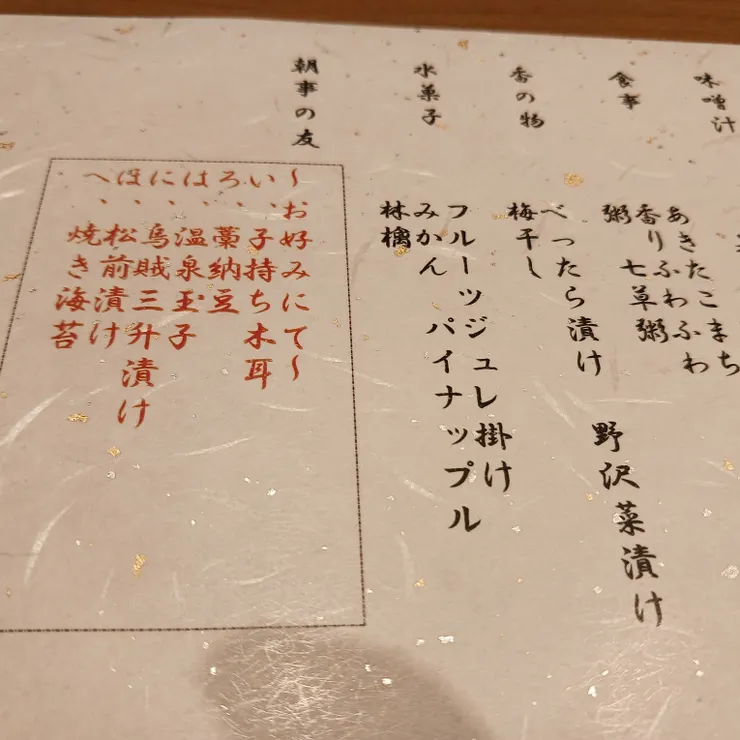 味噌汁
食事
あきたこまち
香りふわふわ
粥 七草粥
香の物
べったら漬け 野沢菜漬け
梅干し
水菓子
フルーツジュレ掛け
みかん パイナップル
林檎
朝事の友
～お好みにて～
い、子持ち木耳
ろ、藁納豆
は、温泉玉子
に、烏賊三升漬け
ほ、松前漬け
へ、焼き海苔